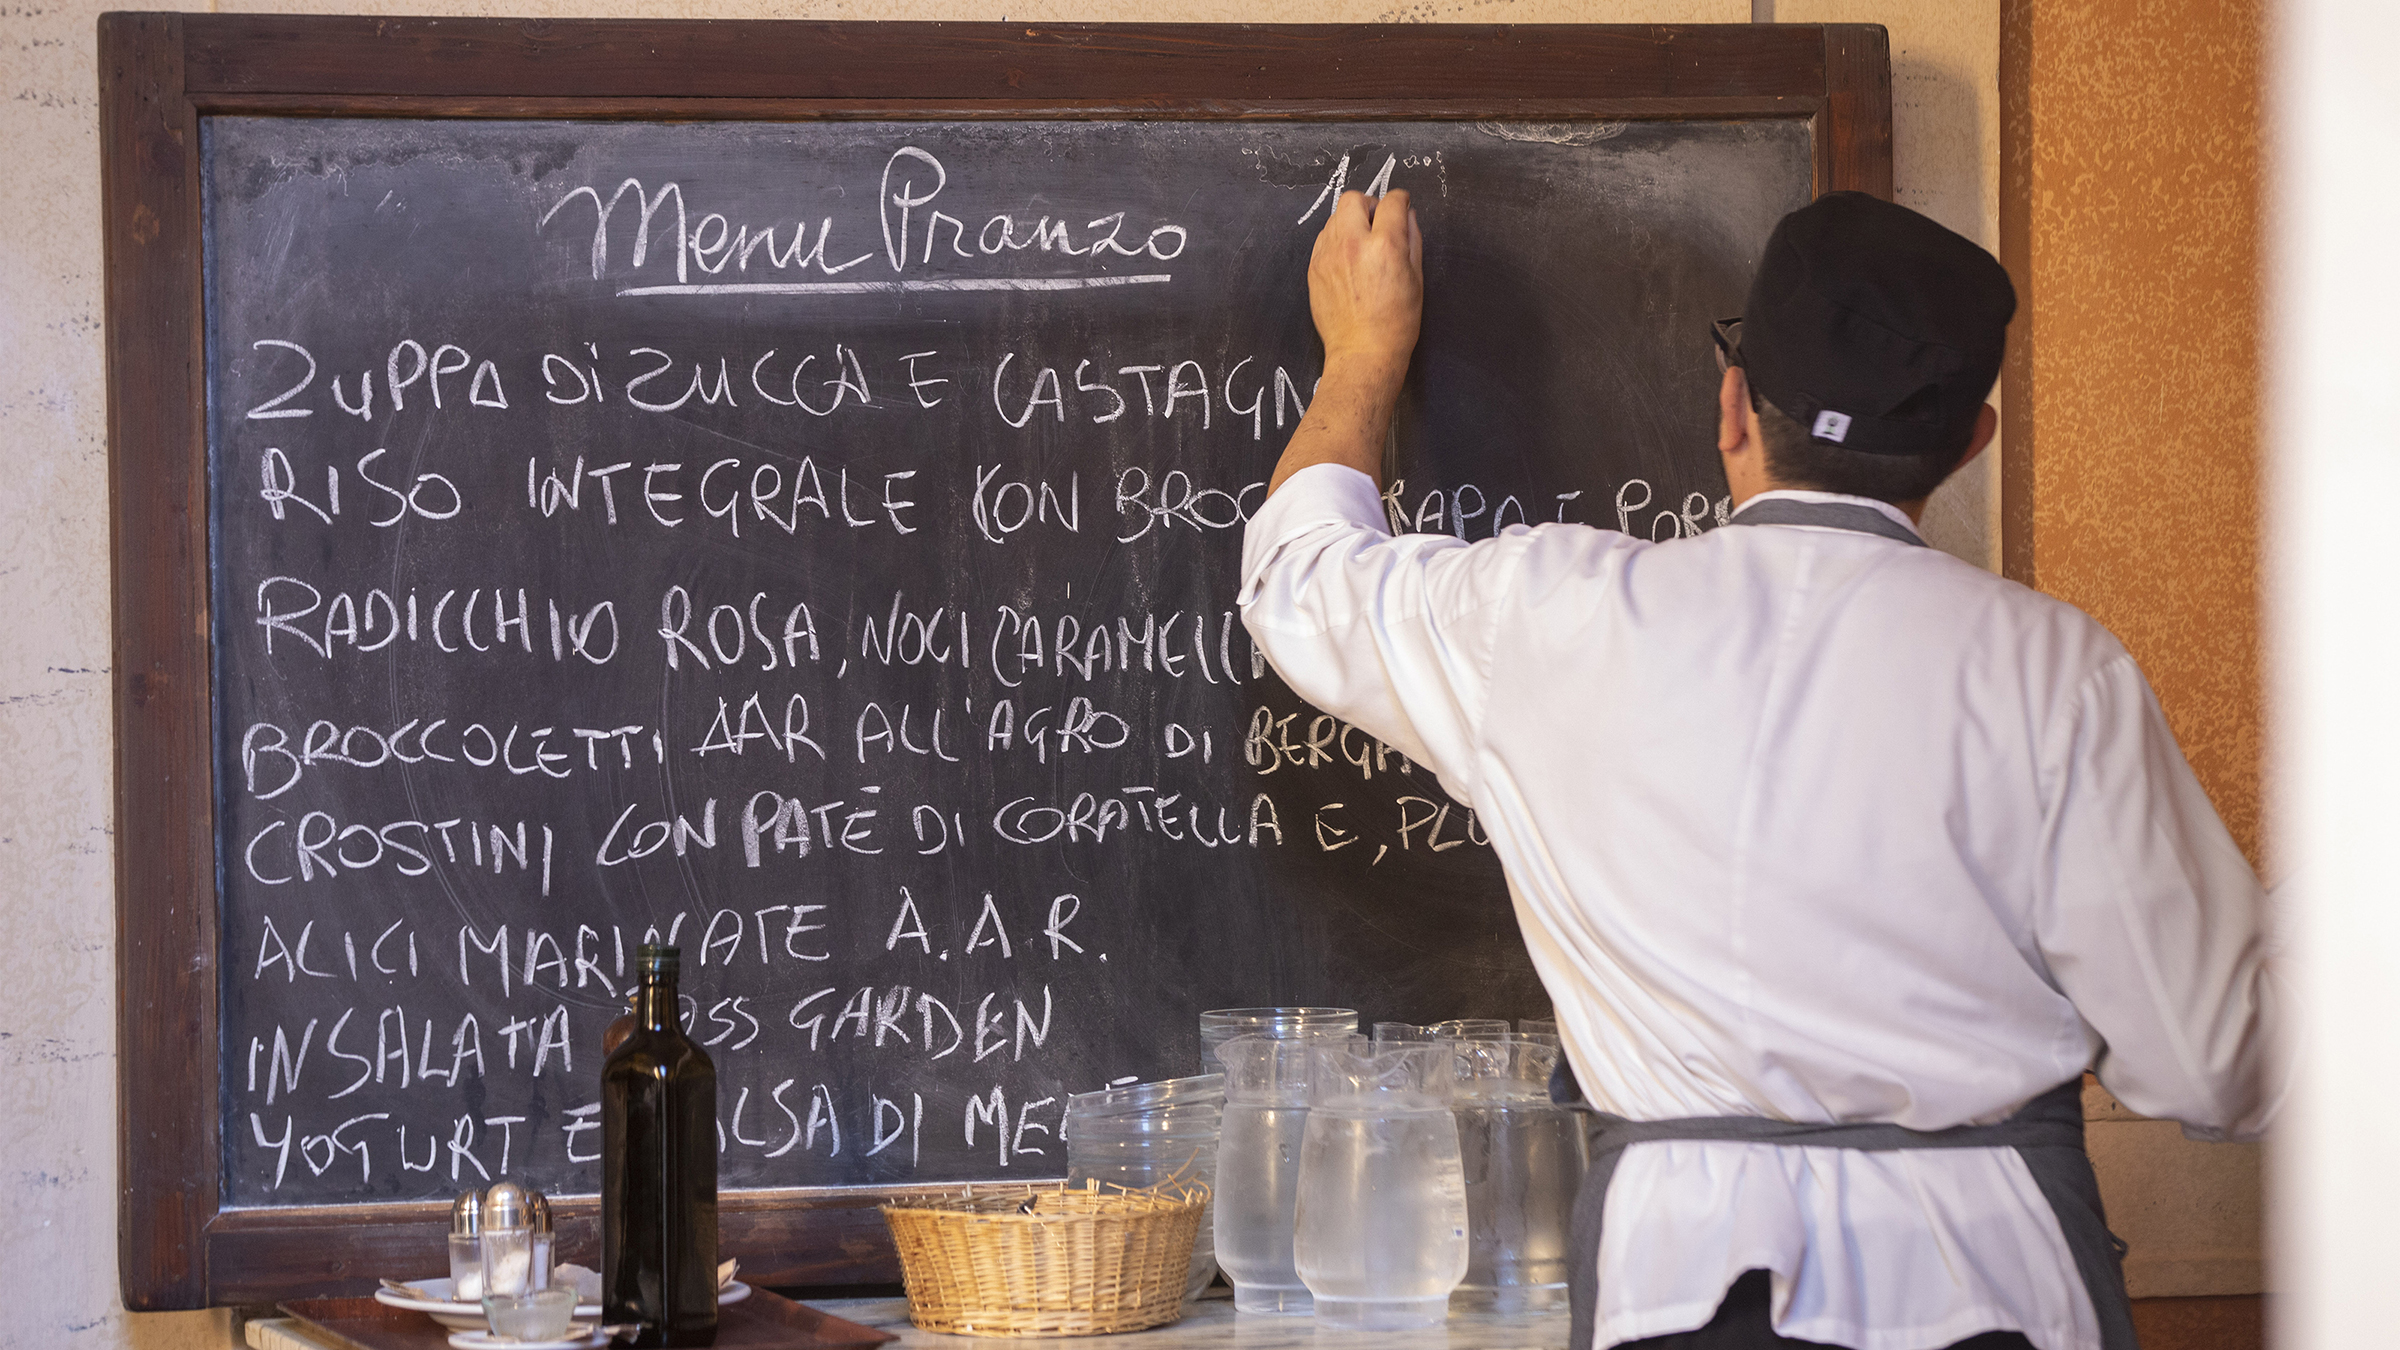 Menu Pranzo 11
ZUPPA DI ZUCCA E CASTAGN
RISO INTEGRALE CON BROC RAPA E PORR
RADICCHIO ROSA, NOCI CARAMELL
BROCCOLETTI AAR ALL'AGRO DI BERGA
CROSTINI CON PATÉ DI CORATELLA E, PLU
ALICI MARINATE A.A.R.
INSALATA OSS GARDEN
YOGURT E ALSA DI ME